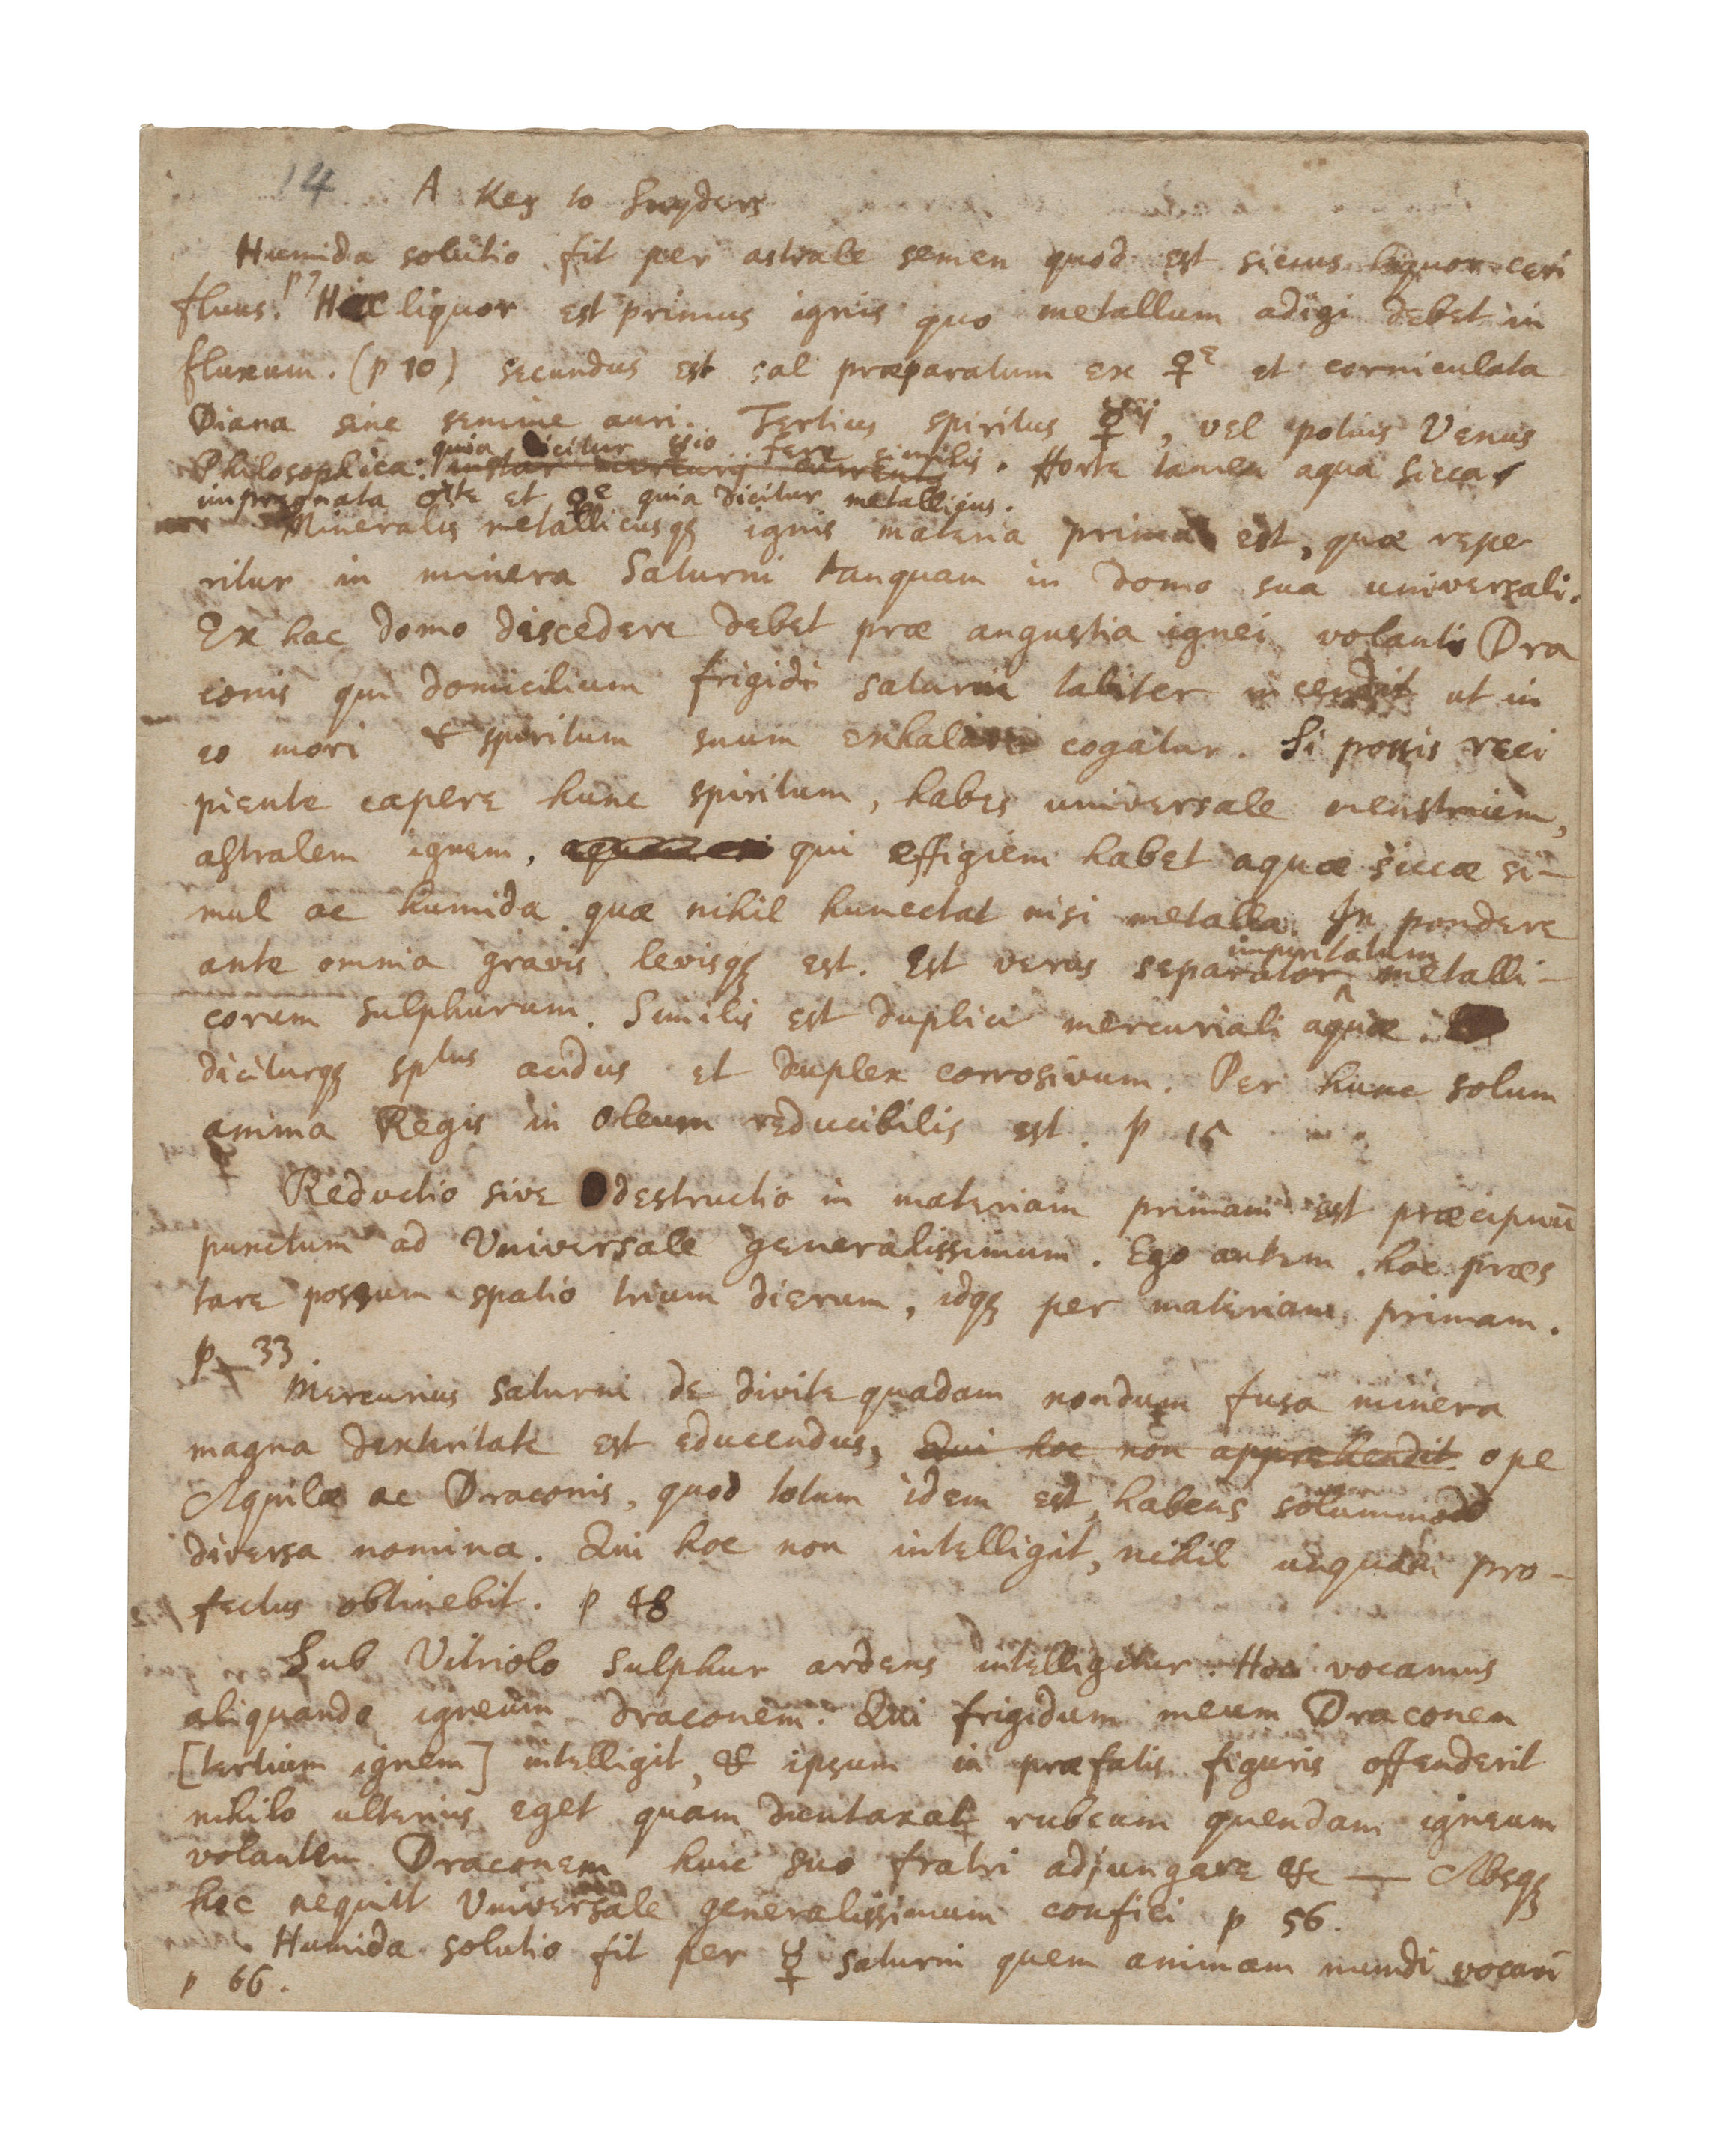 14 A Key to Snyders
Humida solutio fit per astrale semen quod est siccus liquor ceri
fluus. p 7 Hic liquor est primus ignis quo metallum adigi debet in
fluxum. (p 10) secundus est sal præparatum ex ♀e et corniculata
Diana sine semine auri. Tertius spiritus ☿ij, vel potius Venus
quia dicitur fere similis.
Philosophica. instar mercurij currentis Forte tamen aqua sicca
impregnata ♂te et ♀e quia dicitur metallicus.
Mineralis metallicusqꝫ ignis materia prima est, quæ repe
ritur in minera Saturni tanquam in domo sua universali.
Ex hac domo discedere debet præ angustia ignei volantis Dra
conis qui domicilium frigidi saturni taliter incendit ut in
eo mori & spiritum suum exhalare cogatur. Si possis reci
piente capere hunc spiritum, habes universale menstruum,
astralem ignem, qui effigiem habet aquæ siccæ si-
mul ac humida quæ nihil humectat nisi metalla. In pondere
ante omnia gravis levisqꝫ est. Est verus separator metalli-
impuritatum
corum sulphurum. Similis est duplici mercuriali aquæ.
diciturqꝫ sptus acidus et duplex corrosivum. Per hunc solum
anima Regis in oleum reducibilis est. p 15
Reductio sive destructio in materiam primam est præcipuū
punctum ad Universale generalissimum. Ego autem hoc præs
tare possum spatio trium dierum, idqꝫ per materiam primam.
p 33
Mercurius Saturni de divite quadam nondum fusa minera
magna dexteritate est educendus, Qui hoc non apprehendit ope
Aquilæ ac Draconis, quod totum idem est, habens solummodo
diversa nomina. Qui hoc non intelligit, nihil unquam pro-
fectus obtinebit. p 48
Sub Vitriolo sulphur ardens intelligitur. Hoc vocamus
aliquando igneum draconem. Qui frigidum meum Draconem
[tertium ignem] intelligit, & ipsum in præfatis figuris offenderit
nihilo ulterius eget quam duntaxat rubeum quendam igneum
volantem Draconem huic suo fratri adjungere &c — Absqꝫ
hoc nequit Universale generalissimum confici p 56.
Humida solutio fit per ☿ saturni quem animam mundi vocavi
p 66.